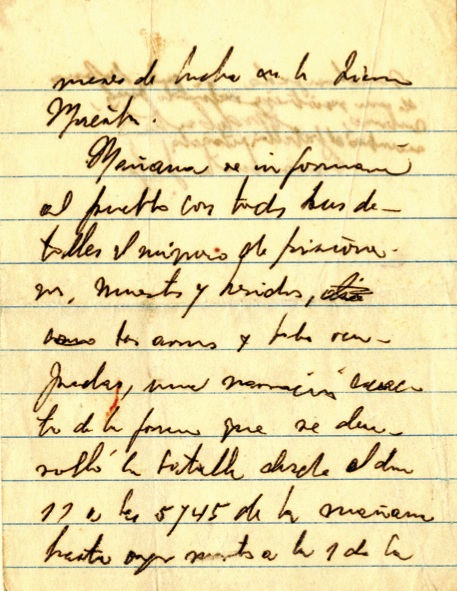 meses de lucha en la Sierra
Maestra.
Mañana se informará
al pueblo con todos sus de-
talles el número de prisione-
ros, muertos y heridos,
las armas y balas ocu-
padas, una narración exac-
ta de la forma que se desa-
rrolló la batalla desde el día
11 a las 5 y 45 de la mañana
hasta a la 1 de la